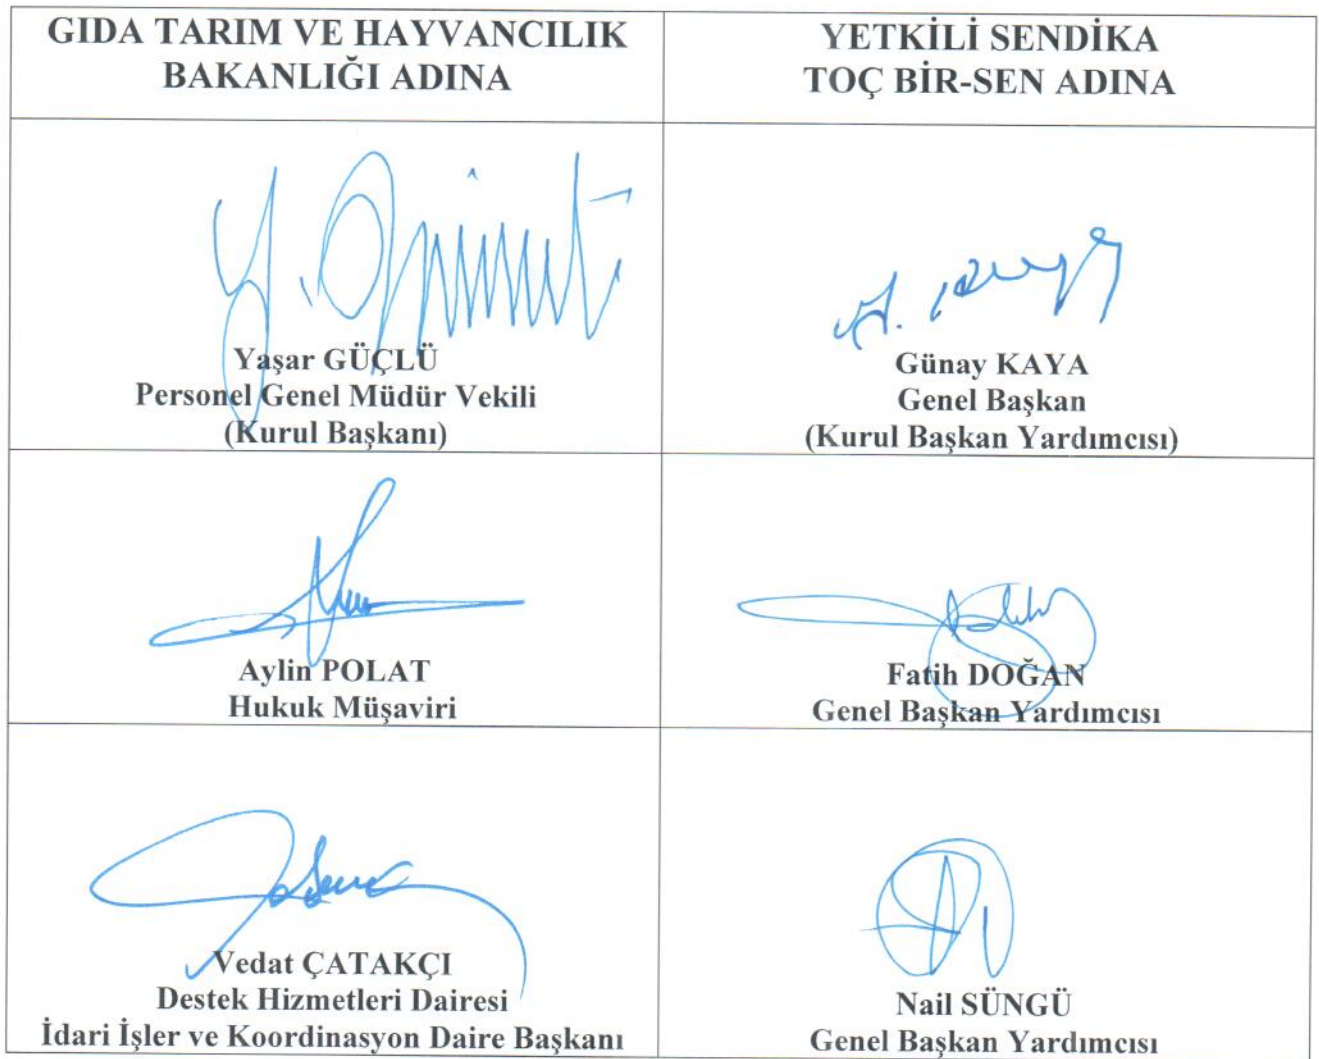 GIDA TARIM VE HAYVANCILIK
BAKANLIĞI ADINA
YETKİLİ SENDİKA
TOÇ BİR-SEN ADINA
Yaşar GÜÇLÜ
Personel Genel Müdür Vekili
(Kurul Başkanı)
Günay KAYA
Genel Başkan
(Kurul Başkan Yardımcısı)
Aylin POLAT
Hukuk Müşaviri
Fatih DOĞAN
Genel Başkan Yardımcısı
Vedat ÇATAKÇI
Destek Hizmetleri Dairesi
İdari İşler ve Koordinasyon Daire Başkanı
Nail SÜNGÜ
Genel Başkan Yardımcısı